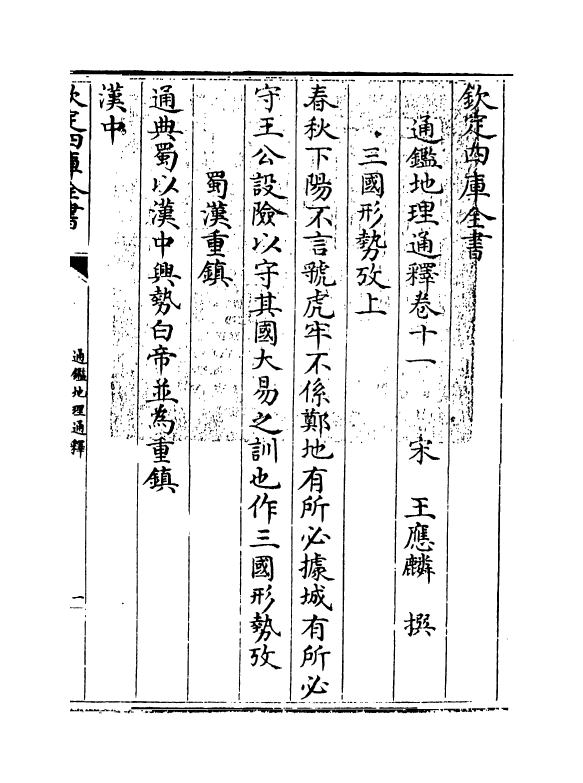 欽定四庫全書
通鑑地理通釋卷十一　宋　王應麟　撰
三國形勢攷上
春秋下陽不言虢虎牢不係鄭地有所必據城有所必
守王公設險以守其國大易之訓也作三國形勢攷
蜀漢重鎮
通典蜀以漢中興勢白帝並為重鎮
漢中
欽定四庫全書
通鑑地理通釋
一